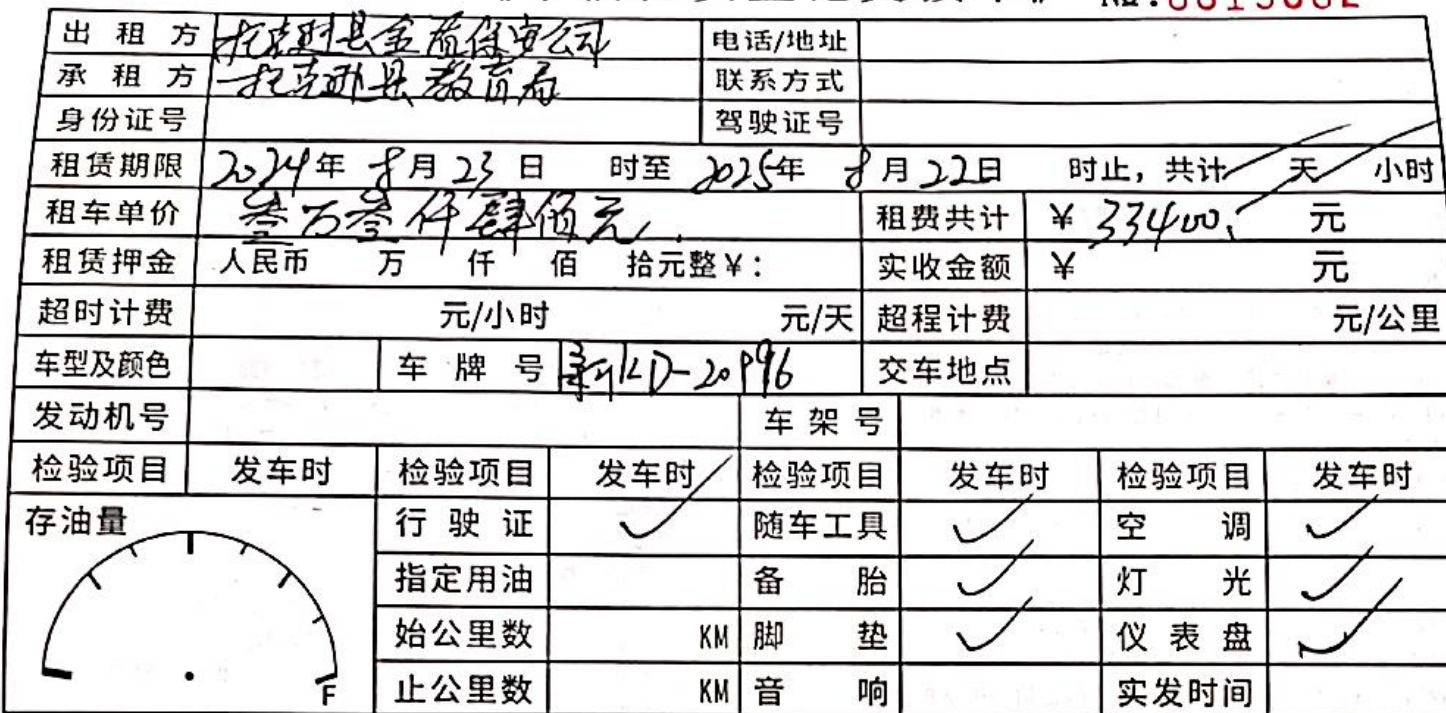 出租方 托克逊县金盾保安公司 电话/地址
承租方 托克逊县教育局 联系方式
身份证号 驾驶证号
租赁期限 2024年 8月 23日 时至 2025年 8月 22日 时止，共计 天 小时
租车单价 叁万叁仟肆佰元. 租费共计 ¥ 33400. 元
租赁押金 人民币 万 仟 佰 拾元整¥： 实收金额 ¥ 元
超时计费 元/小时 元/天 超程计费 元/公里
车型及颜色 车牌号 新KD-20996 交车地点
发动机号 车架号
检验项目 发车时 检验项目 发车时 检验项目 发车时 检验项目 发车时
存油量 行驶证 ✓ 随车工具 ✓ 空调 ✓
指定用油 备胎 ✓ 灯光 ✓
始公里数 KM 脚垫 ✓ 仪表盘 ✓
F 止公里数 KM 音响 实发时间